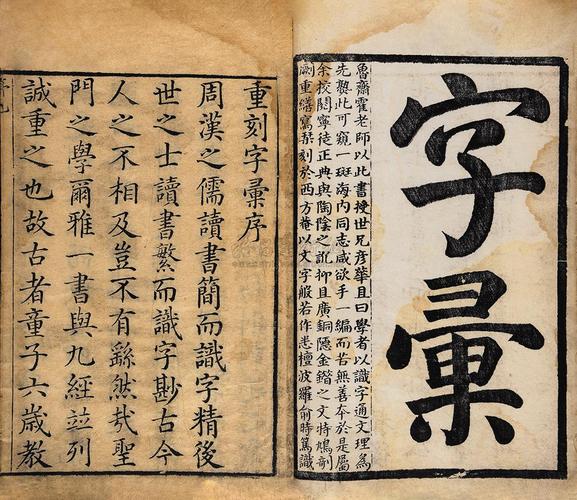 字彙
魯齋霍老師以此書授世兄彥華且曰學者以識字通文理為
先槩此可窺一斑海内同志咸欲手一編而苦無善本於是屬
余校閱寧徒正典與陶陰之訛抑且廣銅隱金鍇之文特鳩剞
劂重繕寫棃刻於西方菴以文字般若作悉檀波羅俞時篤識
重刻字彙序
周漢之儒讀書簡而識字精後
世之士讀書繁而識字尠古今
人之不相及豈不有繇然哉聖
門之學爾雅一書與九經竝列
誠重之也故古者童子六歲教